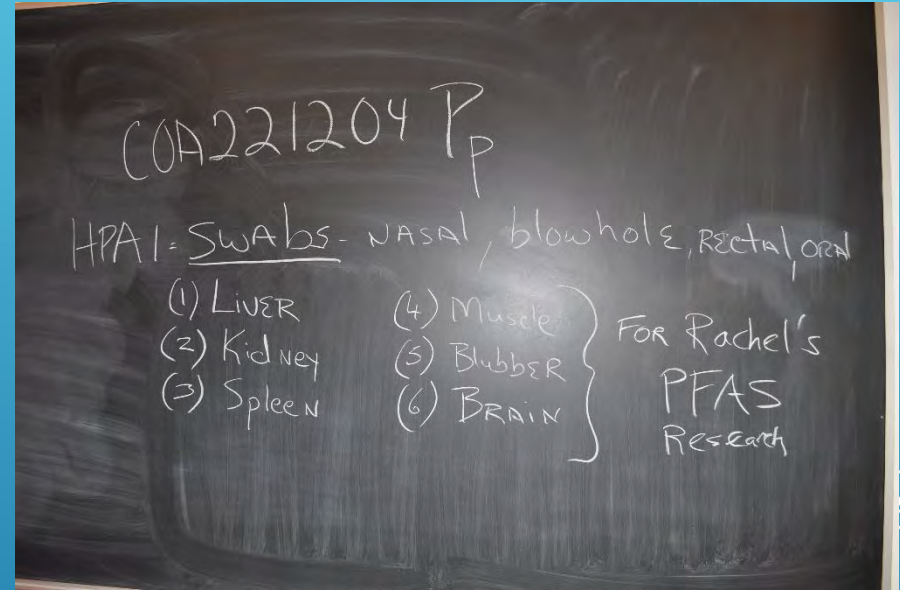 COA221204 Pp
HPAI= SWAbS - NASAl, blowholE, RECtAl, ORAl
(1) LIVER
(2) KidNEy
(3) SplEEN
(4) Muscle
(5) BlubbER
(6) BRAIN
FOR Rachel's
PFAS
Research